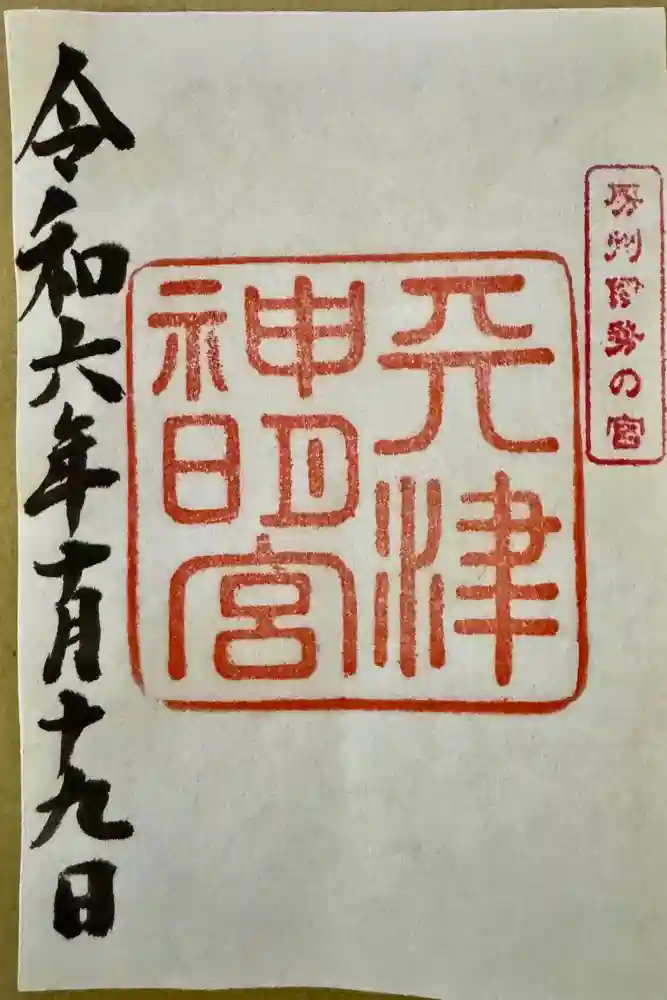 房州伊勢の宮
天津
神明宮
令和六年十月十九日